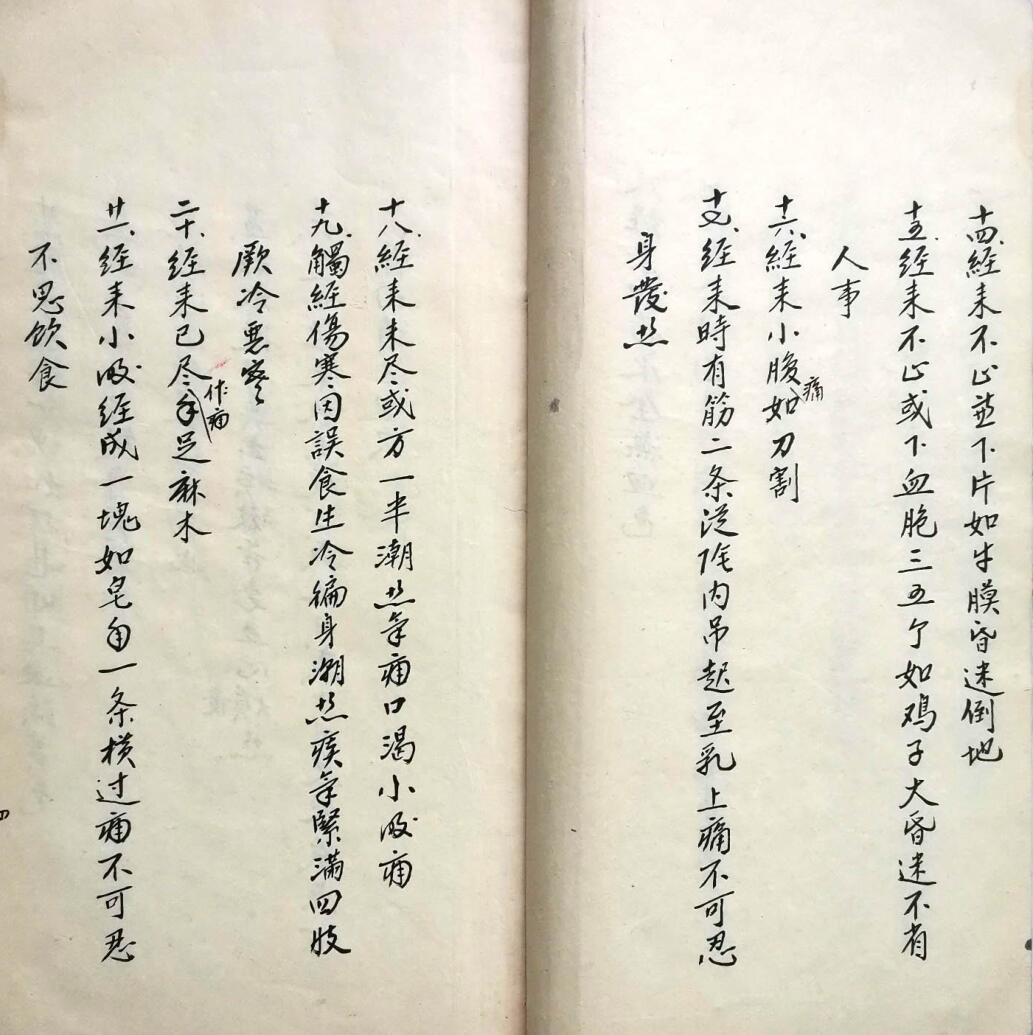 十四、經来不止並下片如牛膜昏迷倒地
十五、经来不止或下血胞三五个如鸡子大昏迷不省
人事
十六、經来小腹痛如刀割
十七、经来時有筋二条從阴内吊起至乳上痛不可忍
身發热
十八、經来未尽或方一半潮热氣痛口渴小腹痛
十九、觸經傷寒因誤食生冷徧身潮热痰氣緊满四肢
厥冷惡寒
二十、經来已尽作痛手足麻木
廿一、经来小腹经成一塊如皂角一条横过痛不可忍
不思饮食